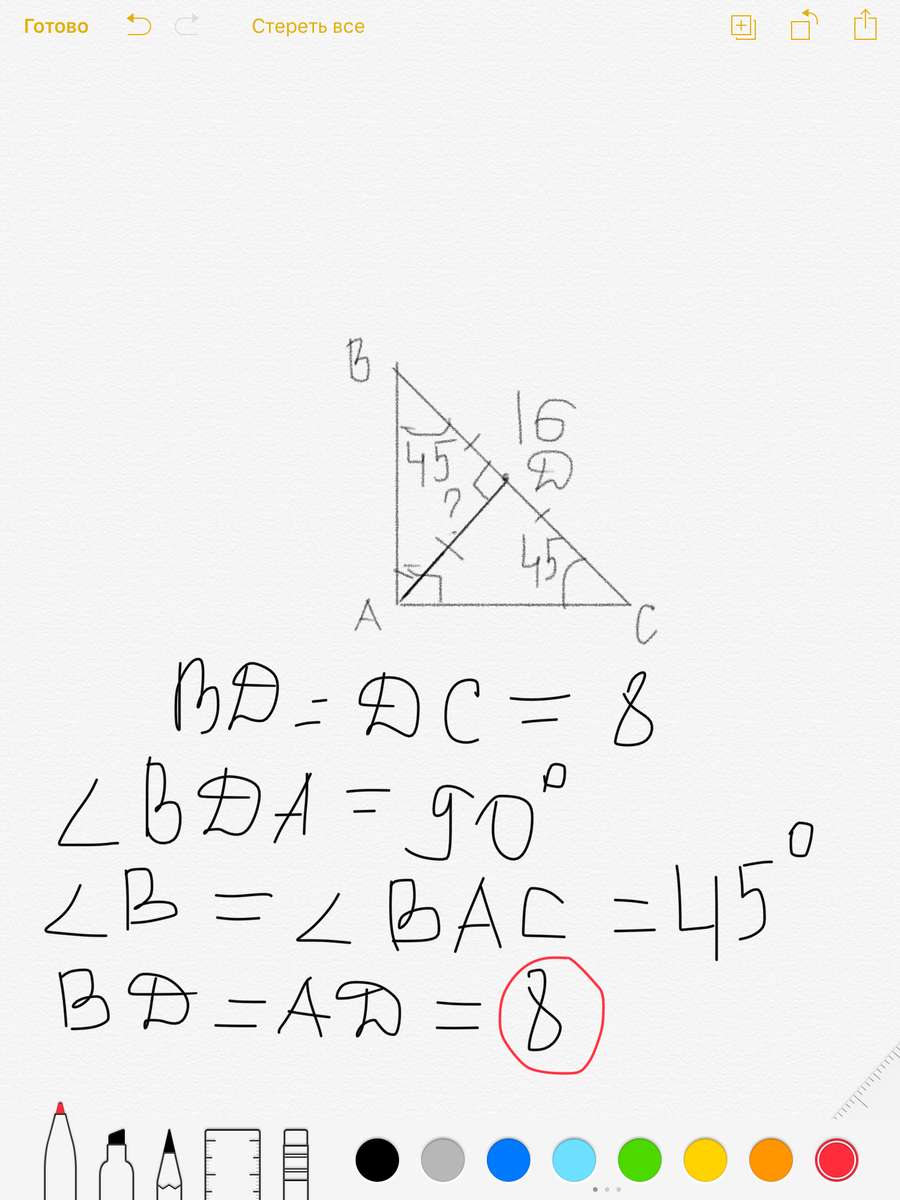 Готово Стереть все
B
16
45 D
?
45
A
C
BD = DC = 8
∠BDA = 90°
∠B = ∠BAC = 45°
BD = AD = 8